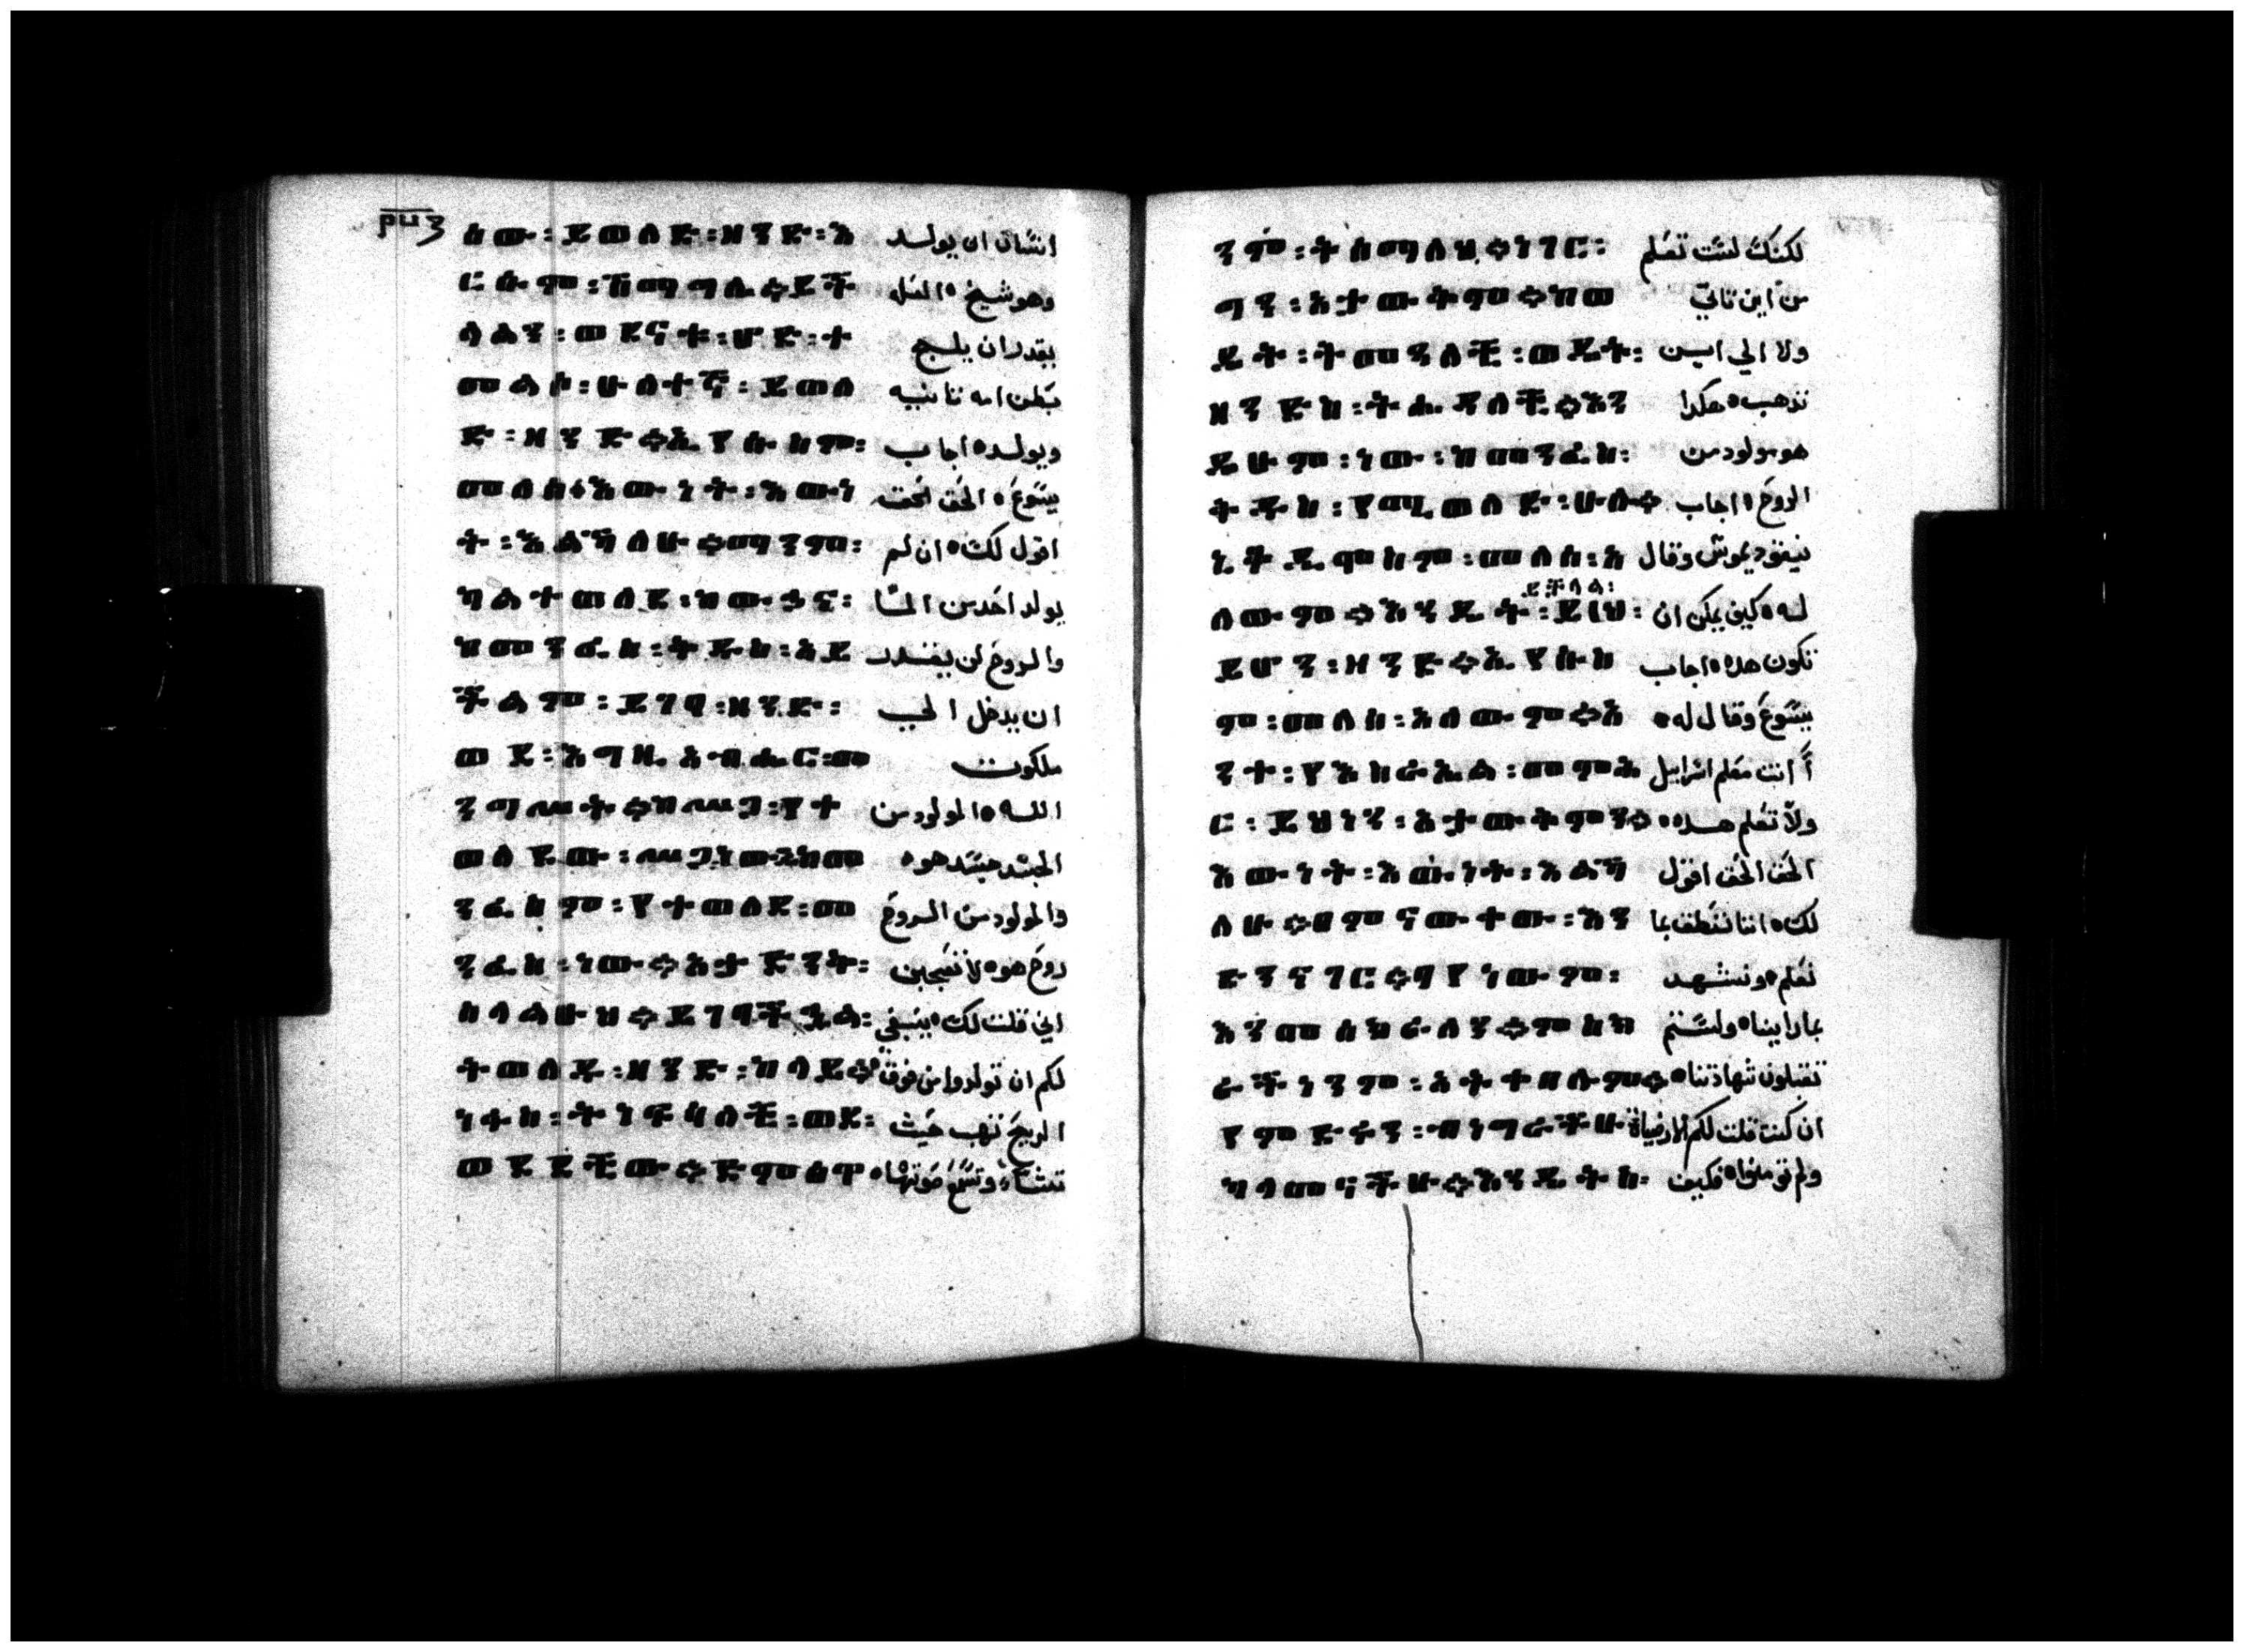 ሰው፡ይወለድ፡ዘንድ፡እ انسان ان يولد
ርሱም፡ሽማግሌ።ይች وهو شيخ ه العل
ላልን፡ወደናት፡ሆድ፡ተ يقدر ان يلج
መልሶ፡ሁለተኛ፡ይወለ بطن امه ثانيه
ድ፡ዘንድ።ኢየሱስም፡ ويولد ه اجاب
መለሰ፥እውነት፡እውነ يسوع ه الحق الحق
ት፡እልሃለሁ።ማንም፡ اقول لك ه ان لم
ካልተወለደ፡ከውኃና፡ يولد احد من الما
ከመንፈስ፡ቅዱስ፡አይ والروح لن يقدر
ችልም፡ይገባ፡ዘንድ፡ ان يدخل الي
ወደ፡እግዚአብሔር፡መ ملكوت
ንግሥት።ከሥጋ፡የተ الله ه المولود من
ወለደው፡ሥጋ፡ነው።ከመ الجسد جسد هو ه
ንፈስም፡የተወለደ፡መ والمولود من الروح
ንፈስ፡ነው።አታድንቅ፡ روح هو ه لا تتعجبن
ስላልሁህ።ይገባችኋል፡ اني قلت لك ه ينبغي
ትወለዱ፡ዘንድ፡ከላይ። لكم ان تولدوا من فوق ه
ነፋስ፡ትነፍሳለች፡ወደ፡ الريح تهب حيث
ወደደችው። تشا ه وتسمع صوتها ه
ንም፡ትሰማለህ።ነገር፡ لكنك لست تعلم
ግን፡አታውቅም።ከወ من اين تاتي
ዴት፡ትመጣለች፡ወዴት፡ ولا الي اين
ዘንድስ፡ትሄዳለች።እን تذهب ه هكذا
ዲሁም፡ነው፡ከመንፈስ፡ هو مولود من
ቅዱስ፡የሚወለድ፡ሁሉ። الروح ه اجاب
ኒቆዲሞስም፡መለሰ፡አ نيقوديموس وقال
ለውም።እንዴት፡ይቻላል፡ይህ፡ له ه كيف يمكن ان
ይሆን፡ዘንድ።ኢየሱስ تكون هذه ه اجاب
ም፡መለሰ፡አለውም።አ يسوع وقال له ه
ንተ፡የእስራኤል፡መምህ أانت معلم اسرايل
ር፡ይህነን፡አታውቅምን። ولا تعلم هذه ه
እውነት፡እውነት፡እልሃ الحق الحق اقول
ለሁ።በምናውቀው፡እን لك ه اننا ننطق بما
ድንናገር።ባየነውም፡ نعلم ه ونشهد
እንመሰክራለን።ምስክ بما راينا ه ولستم
ርችነንም፡አትቀበሉም። تقبلون شهادتنا ه
የምድሩን፡ብነግራችሁ ان كنت قلت لكم الارضياة
ካላመናችሁ።እንዴትስ፡ ولم تومنوا ه فكيف